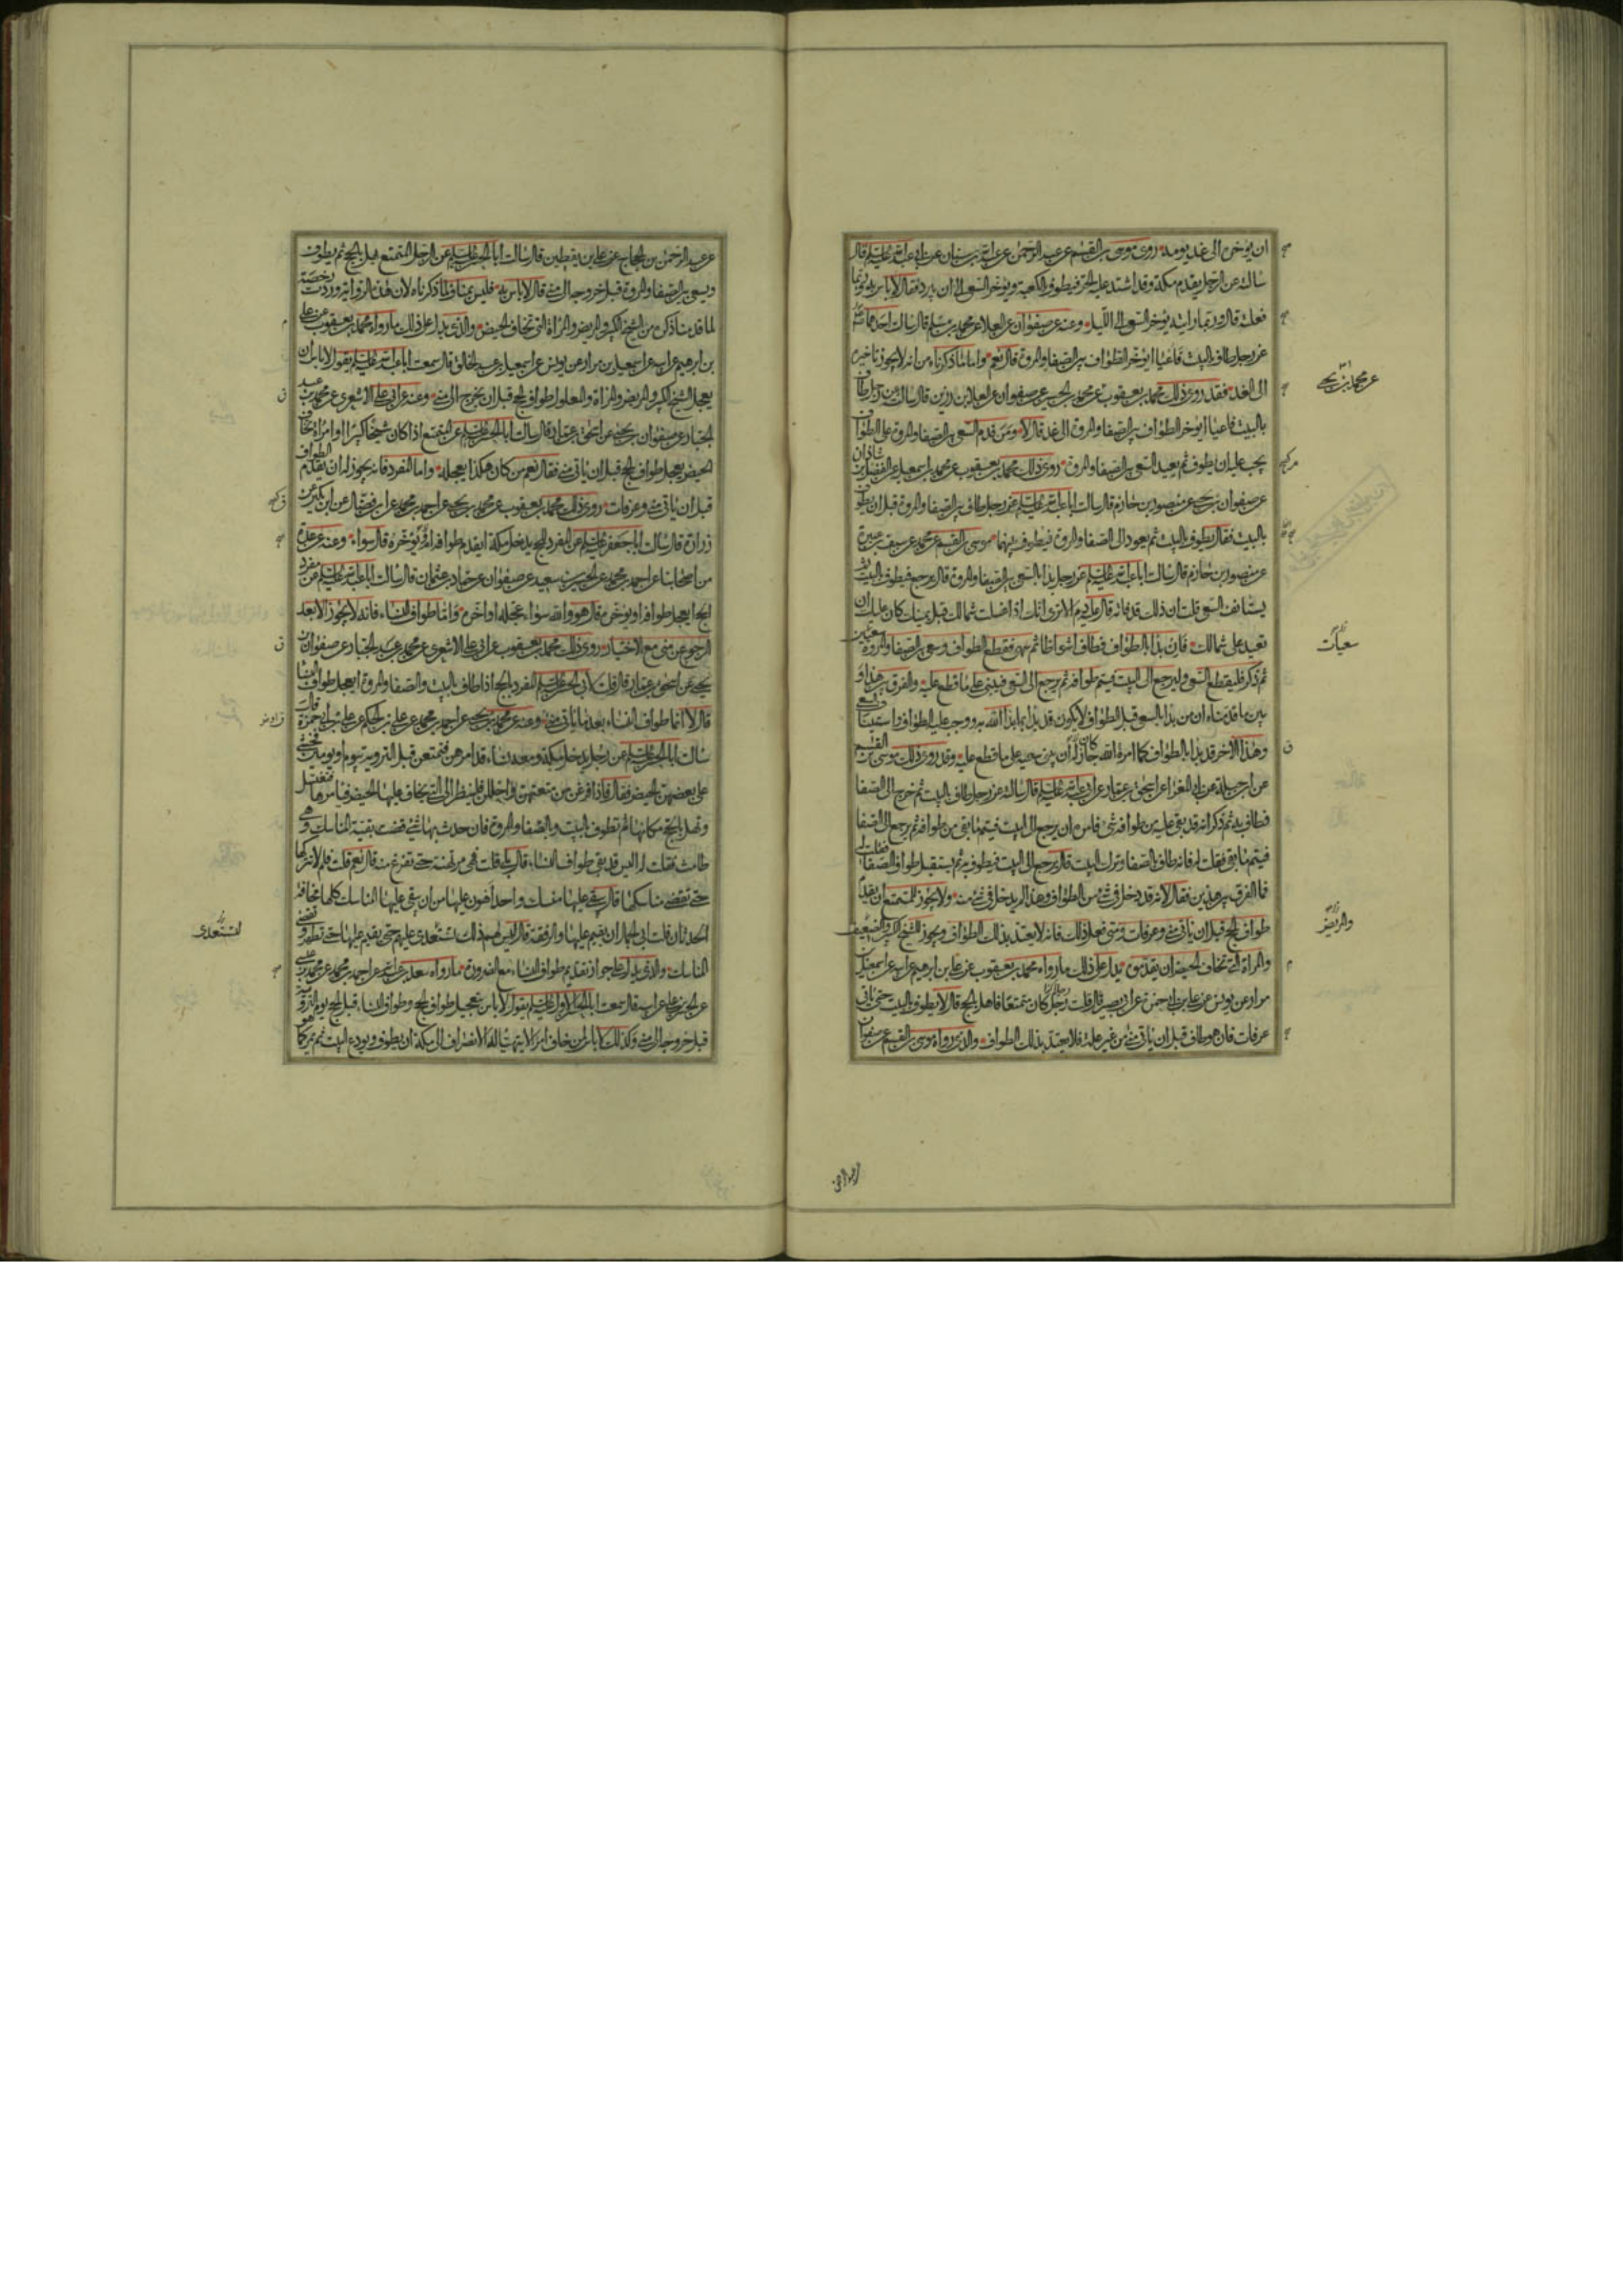 ان يؤخره الى غد يومه روى موسى بن القسم عن عبد الرحمن عن عبد الله بن سنان عن ابى عبد الله عليه السلم قال
سالته عن الرجل يقدم مكة وقد اشتد عليه الحر فيطوف بالكعبة ويؤخر السعى الى ان يبرد فقال لا باس به وربما
فعلته قال وربما رايته يؤخر السعى الى الليل وعنه عن صفوان عن العلا عن محمد بن مسلم قال سالت احدهما
عن رجل طاف بالبيت فاعيا ايؤخر الطواف بين الصفا والمروة قال نعم واما ما ذكرناه من انه لا يجوز تاخيره
الى الغد فقد روى ذلك محمد بن يعقوب عن محمد بن يحيى عن صفوان عن العلا بن رزين قال سالته عن رجل طاف
بالبيت فاعيا ايؤخر الطواف بين الصفا والمروة الى غد قال لا ومن قدم السعى بين الصفا والمروة على الطواف
يجب عليه ان يطوف ثم يعيد السعى بين الصفا والمروة روى ذلك محمد بن يعقوب عن محمد بن اسمعيل عن الفضل بن شاذان
عن صفوان بن يحيى عن منصور بن حازم قال سالت ابا عبد الله عليه السلم عن رجل طاف بين الصفا والمروة قبل ان يطوف
بالبيت فقال يطوف بالبيت ثم يعود الى الصفا والمروة فيطوف بينهما موسى بن القسم عن محمد عن سيف بن عميرة
عن منصور بن حازم قال سالت ابا عبد الله عليه السلم عن رجل بدا بالسعى بين الصفا والمروة قال يرجع فيطوف بالبيت ثم
يستانف السعى قلت ان ذلك قد فاته قال عليه دم الا ترى انك اذا غسلت شمالك قبل يمينك كان عليك ان
تعيد على شمالك فان بدا بالطواف فطاف اشواطا ثم سهى فقطع الطواف وسعى بين الصفا والمروة
ثم ذكر فليقطع السعى وليرجع الى البيت فيتم طوافه ثم يرجع الى السعى فيبنى على ما قطع عليه والفرق بين هذا و
بين ما قدمناه ان من بدا بالسعى قبل الطواف لا يكون قد بدا بما بدا الله به ووجب عليه الطواف واستيناف السعى
وهذا الاخر قد بدا بالطواف كما امره الله كان جاز له ان يبنى حينئذ على ما قطع عليه وقد روى ذلك موسى بن القسم
عن ابن جبلة عن ابى المغرا عن اسحق بن عمار عن ابى عبد الله عليه السلم قال سالته عن رجل طاف بالبيت ثم خرج الى الصفا
فطاف به ثم ذكر انه قد بقى عليه من طوافه شئ فامره ان يرجع الى البيت فيتم ما بقى من طوافه ثم يرجع الى الصفا
فيتم ما بقى فقلت له فانه طاف بالصفا وترك البيت قال يرجع الى البيت فيطوف به ثم يستقبل طواف الصفا فقلت له
فما الفرق بين هذين فقال لانه قد دخل فى شئ من الطواف وهذا لم يدخل فى شئ منه ولا يجوز للمتمتع ان يقدم
طواف الحج قبل ان ياتى منى وعرفات ومتى فعل ذلك فانه لا يعتد بذلك الطواف ويجوز للشيخ الكبير والضعيف
والمراة التى تخاف الحيض ان يقدموه يدل على ذلك ما رواه محمد بن يعقوب عن على بن ابرهيم عن ابيه عن اسمعيل بن
مرار عن يونس عن على بن ابى حمزة عن ابى بصير قال قلت رجل كان متمتعا فاهل بالحج قال لا يطوف بالبيت حتى ياتى
عرفات فان هو طاف قبل ان ياتى منى من غير علة فلا يعتد بذلك الطواف والذى رواه موسى بن القسم عن صفوان
عن محمد بن يحيى
والمريض
عن عبد الرحمن
عن عبد الرحمن بن الحجاج عن على بن يقطين قال سالت ابا الحسن عليه السلم عن الرجل المتمتع يهل بالحج ثم يطوف
ويسعى بين الصفا والمروة قبل خروجه الى منى قال لا باس به فليس بمناف لما ذكرناه لان هذه الرواية وردت رخصة
لما قدمنا ذكره من الشيخ الكبير والمريض والمراة التى تخاف الحيض والذى يدل على ذلك ما رواه محمد بن يعقوب عن على
بن ابرهيم عن ابيه عن اسمعيل بن مرار عن يونس عن اسمعيل بن عبد الخالق قال سمعت ابا عبد الله عليه السلم يقول لا باس ان
يعجل الشيخ الكبير والمريض والمراة والمعلول طواف الحج قبل ان يخرج الى منى وعنه عن ابى على الاشعرى عن محمد بن عبد
الجبار عن صفوان بن يحيى عن اسحق بن عمار قال سالت ابا الحسن عليه السلم عن المتمتع اذا كان شيخا كبيرا او امراة تخاف
الحيض يعجل طواف الحج قبل ان ياتى منى فقال نعم من كان هكذا يعجل واما المفرد فانه يجوز له ان يقدم الطواف
قبل ان ياتى منى وعرفات روى ذلك محمد بن يعقوب عن محمد بن يحيى عن احمد بن محمد عن ابن فضال عن ابن بكير عن
زرارة قال سالت ابا جعفر عليه السلم عن المفرد للحج يدخل مكة ايقدم طوافه او يؤخره قال سواء وعنه عن عدة
من اصحابنا عن احمد بن محمد عن الحسين بن سعيد عن صفوان عن حماد بن عثمان قال سالت ابا عبد الله عليه السلم عن مفرد
الحج ايعجل طوافه او يؤخره فقال هو والله سواء عجله او اخره واما طواف النساء فانه لا يجوز الا بعد
الرجوع من منى مع الاختيار روى ذلك محمد بن يعقوب عن ابى على الاشعرى عن محمد بن عبد الجبار عن صفوان بن
يحيى عن اسحق بن عمار قال قلت لابى الحسن عليه السلم المفرد بالحج اذا طاف بالبيت والصفا والمروة ايعجل طواف النساء
قال لا انما طواف النساء بعد ما ياتى منى وعنه عن محمد بن يحيى عن احمد بن محمد عن على بن الحكم عن على بن ابى حمزة قال
سالت ابا الحسن عليه السلم عن رجل يدخل مكة ومعه نساء قد امرهن فتمتعن قبل التروية بيوم او يومين فخشى
على بعضهن الحيض فقال فاذا فرغن من متعتهن واحللن فلينظر الى التى يخاف عليها الحيض فيامرها فتغتسل
وتهل بالحج مكانها ثم تطوف بالبيت وبالصفا والمروة فان حدث بها شئ قضت بقية المناسك وهى
طامث فقلت له اليس قد بقى طواف النساء قال بلى قلت فهى مرتهنة حتى تفرغ منه قال نعم قلت فلم لا تتركها
حتى تقضى مناسكها قال يبقى عليها منسك واحد اهون عليها من ان يبقى عليها المناسك كلها مخافة
الحدثان قلت ابى الجمال ان يقيم عليها والرفقة قال ليس لهم ذلك تستعدى عليهم حتى يقيم عليها حتى تطهر وتقضى
المناسك والذى يدل على جواز تقديم طواف النساء مع الضرورة ما رواه سعد بن عبد الله عن احمد بن محمد عن محمد بن عيسى
عن الحسن بن على عن ابيه قال سمعت ابا الحسن الاول عليه السلم يقول لا باس بتعجيل طواف الحج وطواف النساء قبل الحج يوم التروية
قبل خروجه الى منى وكذلك لا باس لمن خاف امرا لا يتهيا له الانصراف الى مكة ان يطوف ويودع البيت ثم يمر كما هو
لتستعدى